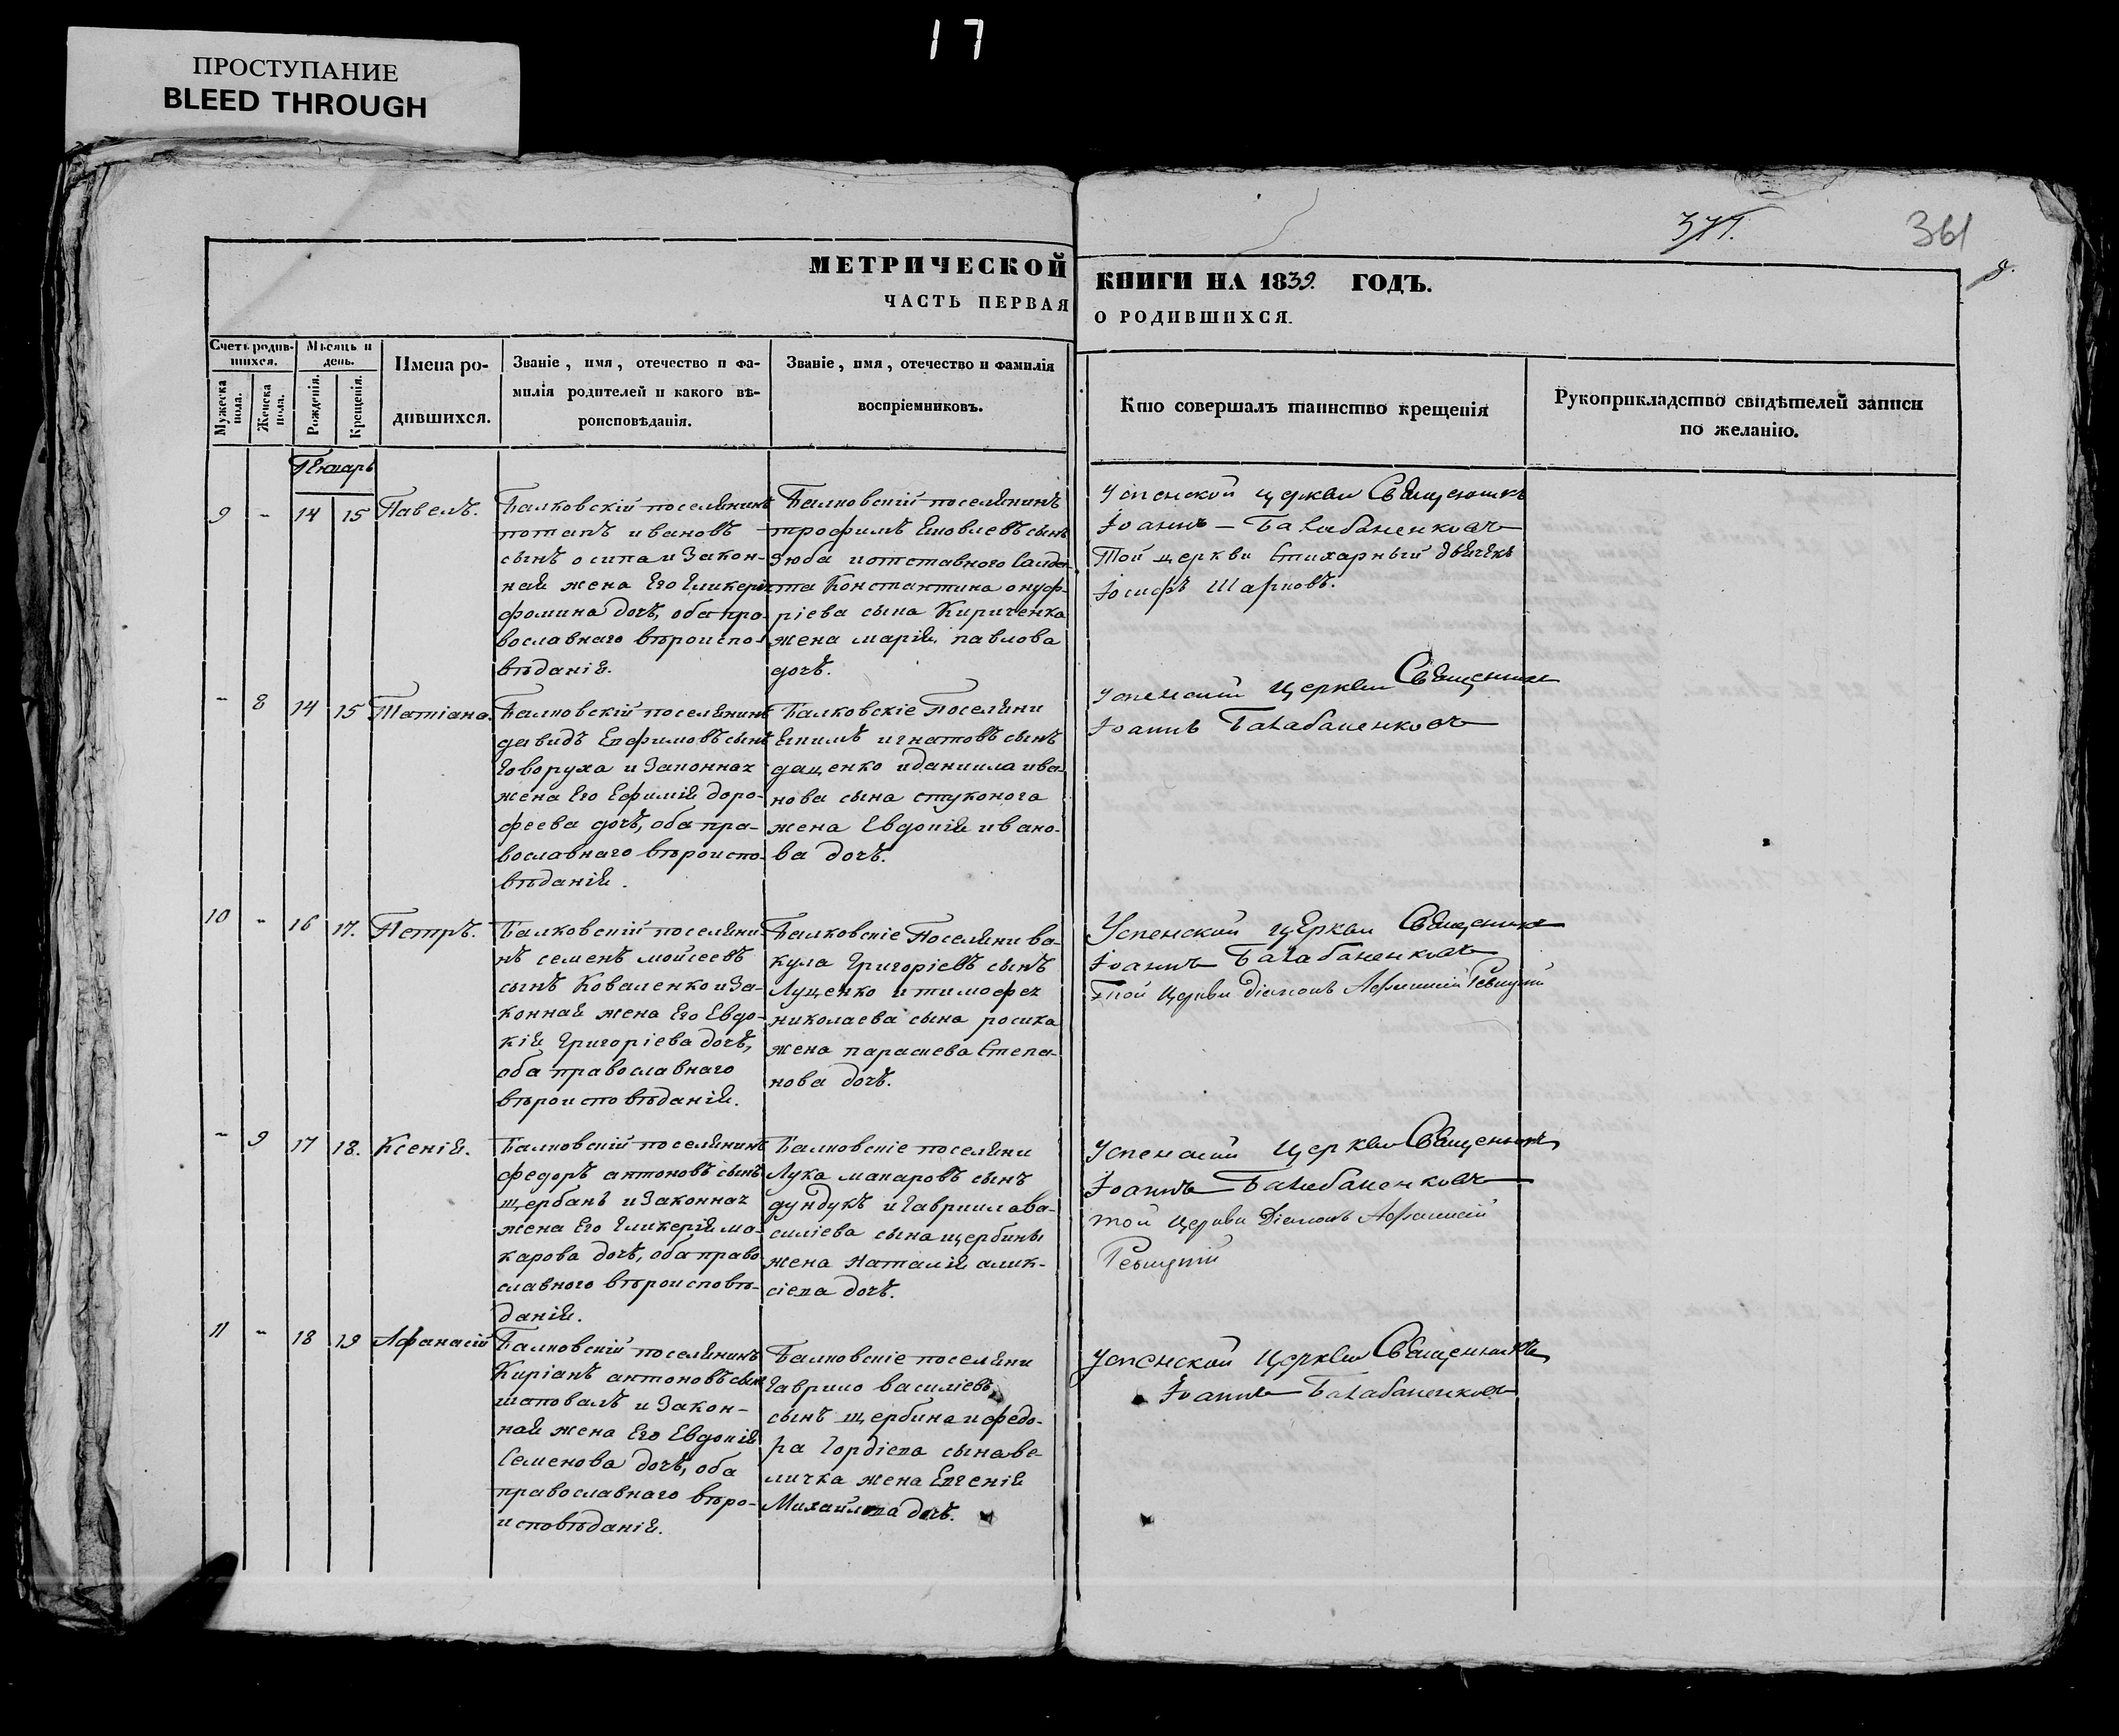 17
ПРОСТУПАНИЕ
BLEED THROUGH
371.
361
МЕТРИЧЕСКОЙ
ЧАСТЬ ПЕРВАЯ
КНИГИ НА 1839. ГОДЪ.
О РОДИВШИХСЯ.
Счетъ родив-
шихся.
Мѣсяцъ и
день.
Мужеска
пола.
Женска
пола.
Рожденія.
Крещенія.
Имена ро-
дившихся.
Званіе, имя, отечество и фа-
милія родителей и какого вѣ-
роисповѣданія.
Званіе, имя, отечество и фамилія
воспріемниковъ.
Кто совершалъ таинство крещенія
Рукоприкладство свидѣтелей записи
по желанію.
Генварь
9 - 14 15 Павелъ.
Балковскій поселянинъ
потапъ ивановъ
сынъ осипа и Закон-
ная жена Его Гликерія
фомина дочь, оба пра-
вославнаго вѣроиспо-
вѣданія.
Балковскій поселянинъ
трофимъ Яковлевъ сынъ
Зюба и отставнаго Салда-
та Константина онуф-
ріева сына Кириченка
жена марія павлова
дочь.
Успенской церкви Священникъ
Іоаннъ Балабаненковъ
Той церкви Стихарный дьячекъ
Іосифъ Шарковъ.
- 8 14 15 Татіана.
Балковскій поселянинъ
давидъ Ефимовъ сынъ
Говоруха и Законная
жена Его Ефимія доро-
феева дочь, оба пра-
вославнаго вѣроиспо-
вѣданія.
Балковскіе Поселяни
Екимъ игнатовъ сынъ
даценко и даниила ива-
нова сына стуконога
жена Евдокія ивано-
ва дочь.
Успенской церкви Священникъ
Іоаннъ Балабаненковъ
10 - 16 17. Петръ.
Балковскій поселяни-
нъ семенъ мойсеевъ
сынъ Коваленко и За-
конная жена Его Евдо-
кія Григоріева дочь,
оба православнаго
вѣроисповѣданія.
Балковскіе Поселяни ва-
кула Григоріевъ сынъ
Луценко и тимофея
николаева сына росика
жена параскева Степа-
нова дочь.
Успенской церкви Священникъ
Іоаннъ Балабаненковъ
Той Церкви Діаконъ Афанасій
- 9 17 18. Ксенія.
Балковскій поселянинъ
федоръ антоновъ сынъ
щербанъ и Законная
жена Его Гликерія ма-
карова дочь, оба право-
славнаго вѣроисповѣ-
данія.
Балковскіе поселяни
Лука макаровъ сынъ
дундукъ и Гавриила ва-
силіева сына щербины
жена Наталія алек-
сіева дочь.
Успенской Церкви Священникъ
Іоаннъ Балабаненковъ
той Церкви Діаконъ Афанасій
11 - 18 19 Афанасій
Балковскій поселянинъ
Киріанъ антоновъ сынъ
шаповалъ и Закон-
ная жена Его Евдокія
Семенова дочь, оба
православнаго вѣро-
исповѣданія.
Балковскіе поселяни
Гаврило василіевъ
сынъ щербина и федо-
ра Гордіева сына ве-
личка жена Евгенія
Михайлова дочь.
Успенской Церкви Священникъ
Іоаннъ Балабаненковъ